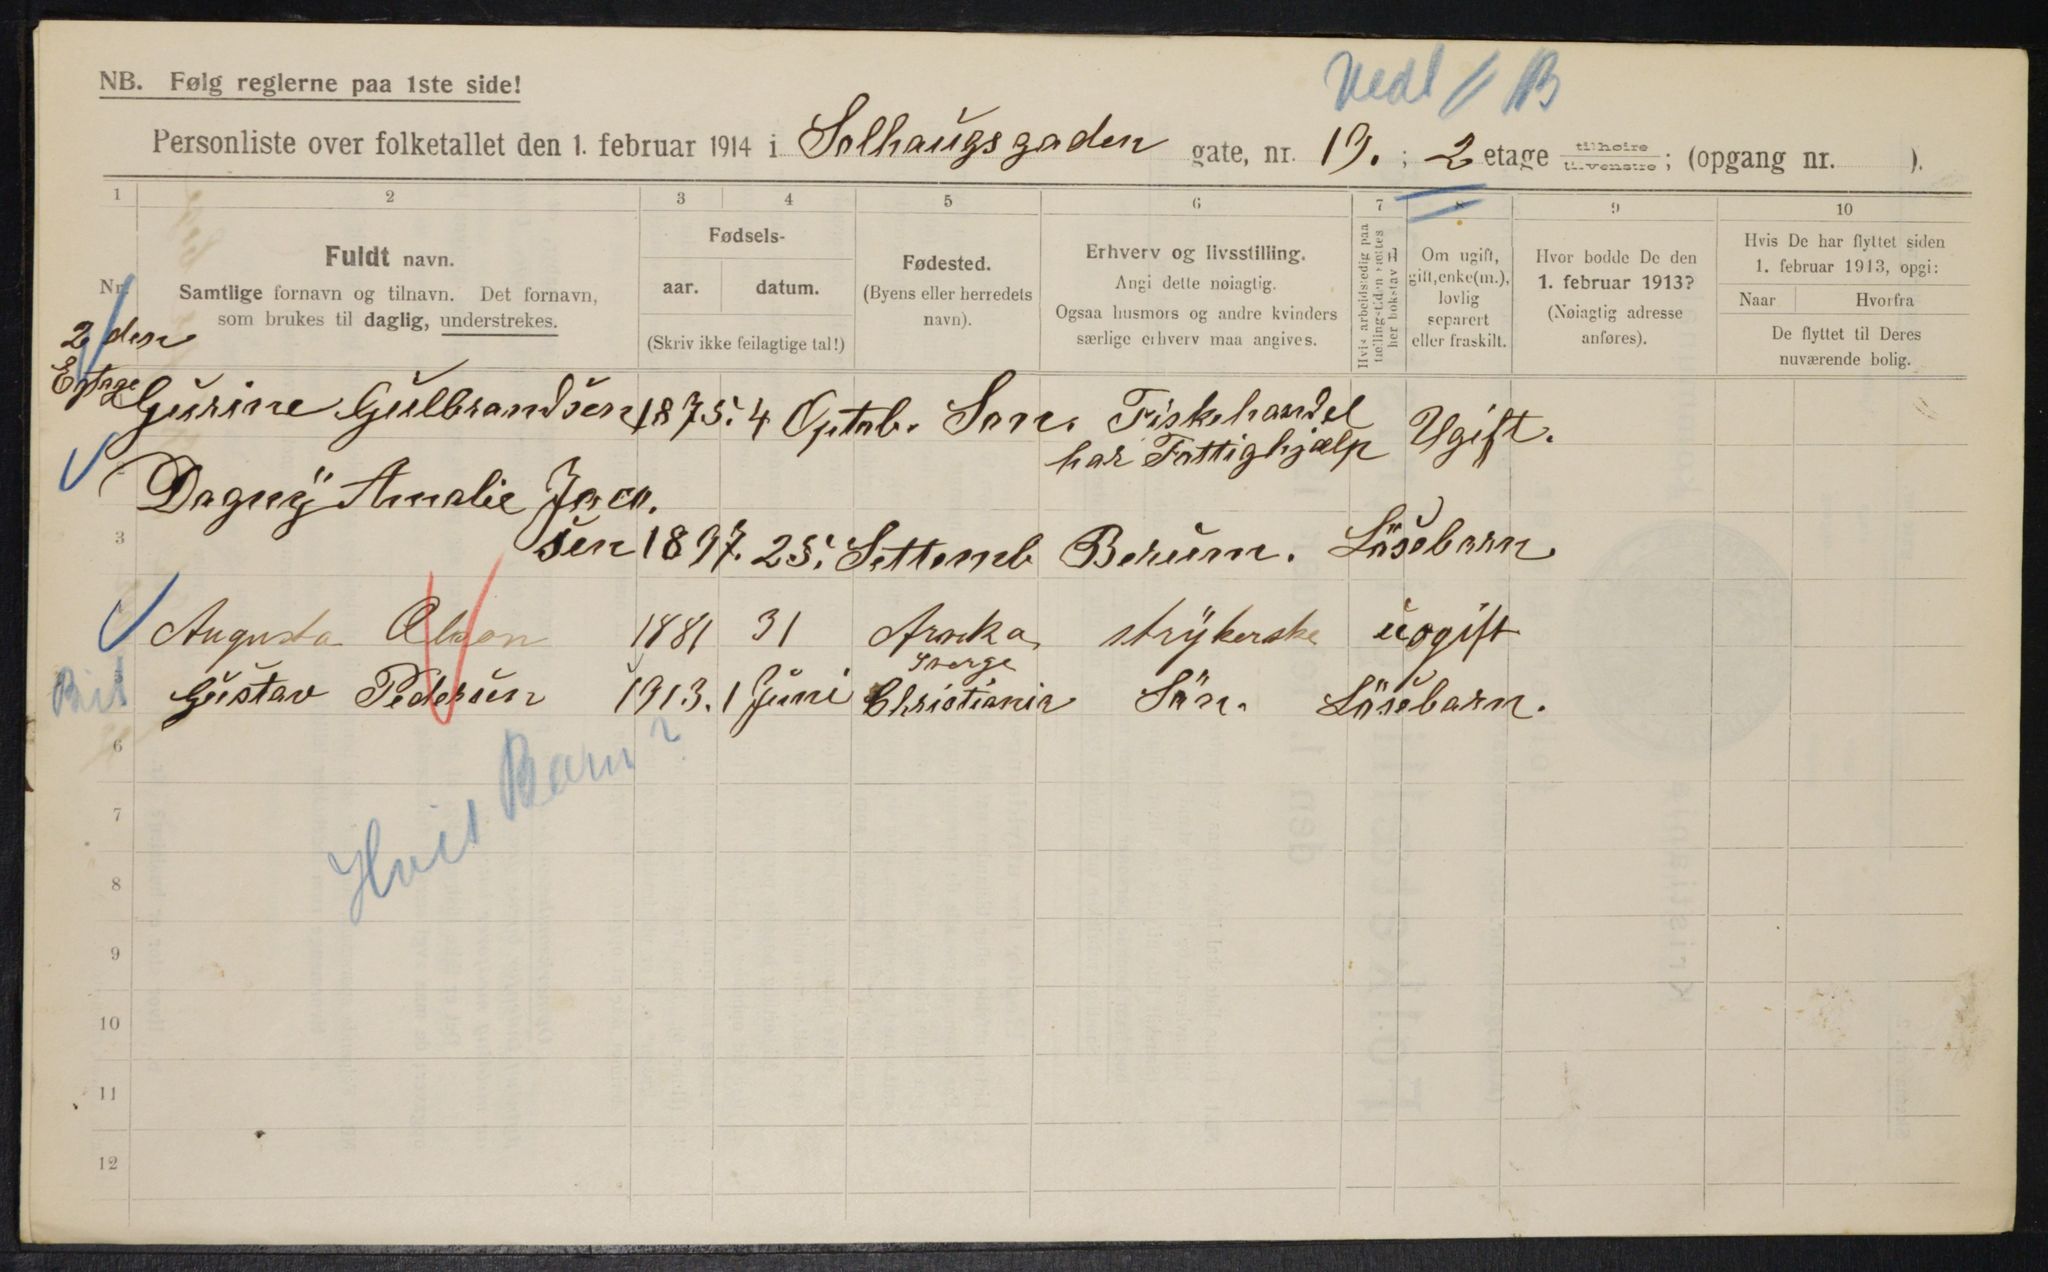 Vedl B
NB. Følg reglerne paa 1ste side!
Personliste over folketallet den 1. februar 1914 i Solhaugsgaden gate, nr. 19. ; 2 etage tilhøire tilvenstre ; (opgang nr. ).
1 2 3 4 5 6 7 8 9 10
Nr.
Fuldt navn.
Samtlige fornavn og tilnavn. Det fornavn,
som brukes til daglig, understrekes.
Fødsels-
aar. datum.
(Skriv ikke feilagtige tal!)
Fødested.
(Byens eller herredets
navn).
Erhverv og livsstilling.
Angi dette nøiagtig.
Ogsaa husmors og andre kvinders
særlige erhverv maa angives.
Hvis arbeidsledig paa
tællingstiden sættes
her bokstav
Om ugift,
gift, enke(m.),
lovlig
separert
eller fraskilt.
Hvor bodde De den
1. februar 1913?
(Nøiagtig adresse
anføres).
Hvis De har flyttet siden
1. februar 1913, opgi:
Naar Hvorfra
De flyttet til Deres
nuværende bolig.
2 den
Gurine Gulbrandsen 1875. 4 Son. Fiskehandel Ugift.
har Fattighjælp
Dagny Amalie Jaco.
3 sen 1897. 25. Settemb Berum. Løsebarn.
Augusta Olson 1881 31 strykerske uogift
5 Gustav Pedersen 1913. 1 Juni Christiania Søn. Løsebarn.
6
Hvis Barn?
7
8
9
10
11
12